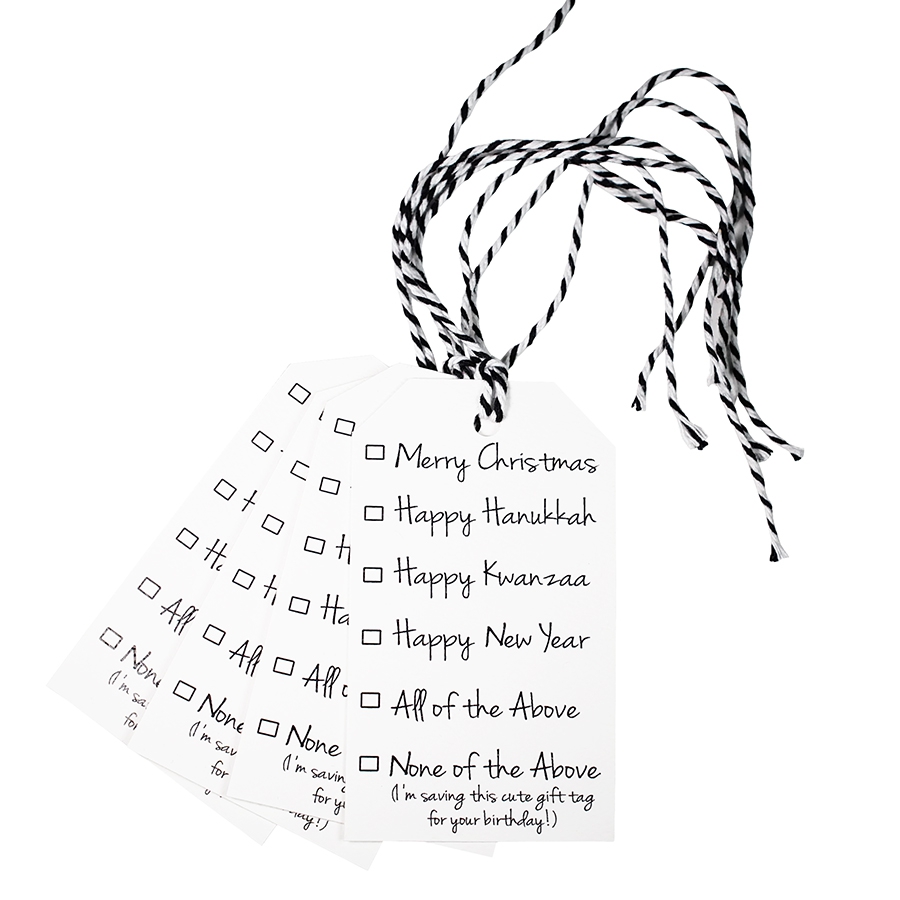 Merry Christmas
Happy Hanukkah
Happy Kwanzaa
Happy New Year
All of the Above
None of the Above
(I'm saving this cute gift tag
for your birthday!)
H
Ha
All
None
(I'm saving
for
day!)
All
None
(I'm sav
for
All
None
(I'm sa
for